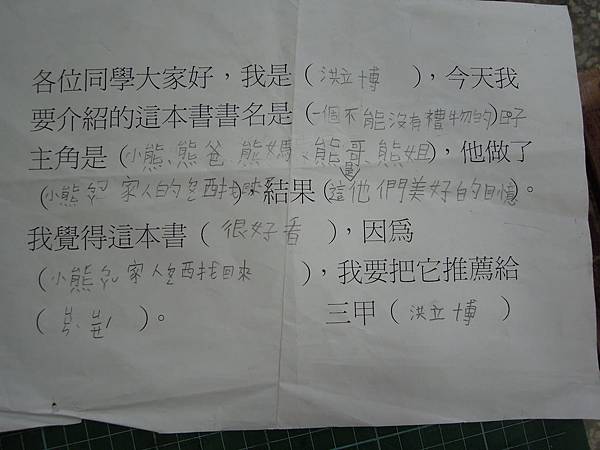 各位同學大家好，我是（洪立博），今天我
要介紹的這本書書名是（一個不能沒有禮物的）日子
主角是（小熊、熊爸、熊媽、熊哥、熊姐），他做了
（小熊 家人的 西找回來），結果（這是他們美好的回憶）。
我覺得這本書（很好看），因為
（小熊 家人 西找回來），我要把它推薦給
（）。 三甲（洪立博）